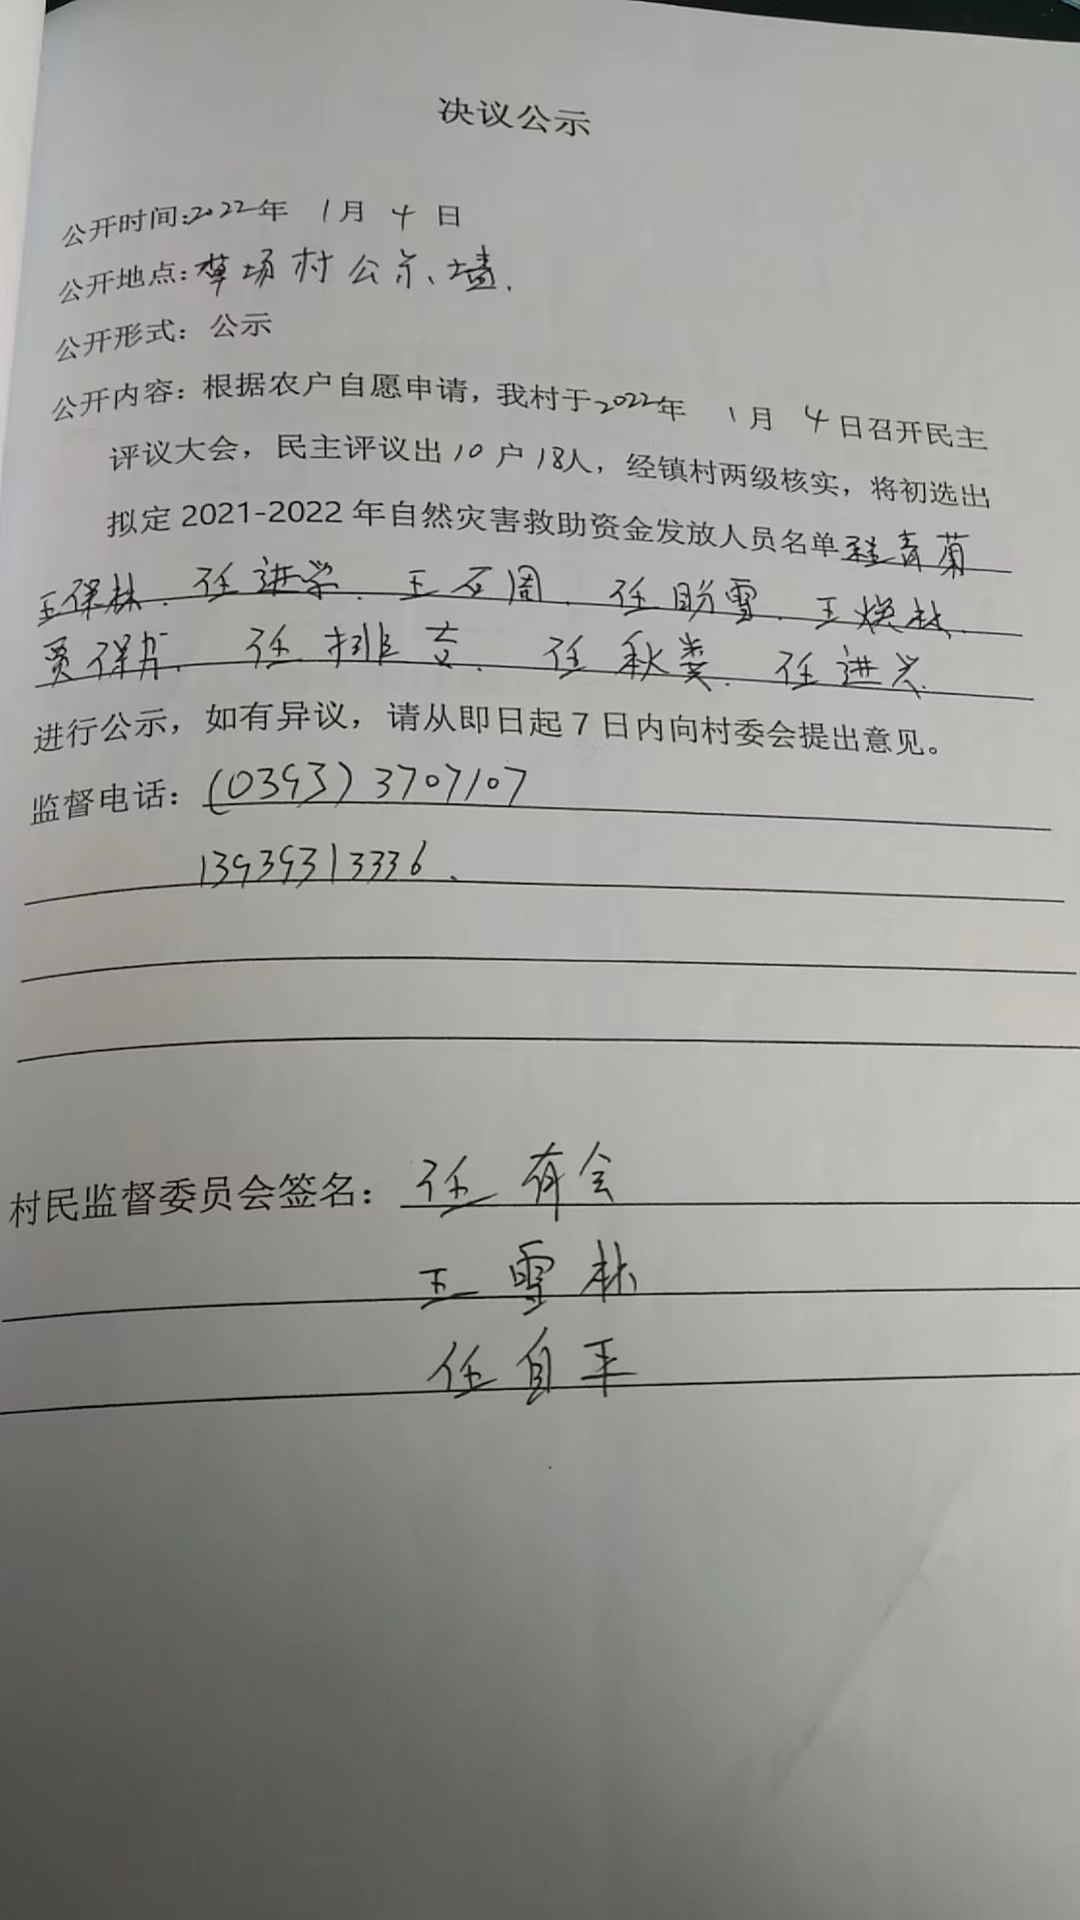 决议公示
公开时间:2022年 1月 4 日
公开地点:草场村公示墙.
公开形式：公示
公开内容：根据农户自愿申请，我村于2022年 1月 4日召开民主
评议大会，民主评议出10户18人，经镇村两级核实，将初选出
拟定2021-2022年自然灾害救助资金发放人员名单程青菊
王保林. 任进学. 王石周. 任盼雪. 王焕林.
贾保. 任排. 任秋娄. 任进兴.
进行公示，如有异议，请从即日起7日内向村委会提出意见。
监督电话：(0393) 3707107
13939313336.
村民监督委员会签名：任有会
王雪林
任自平